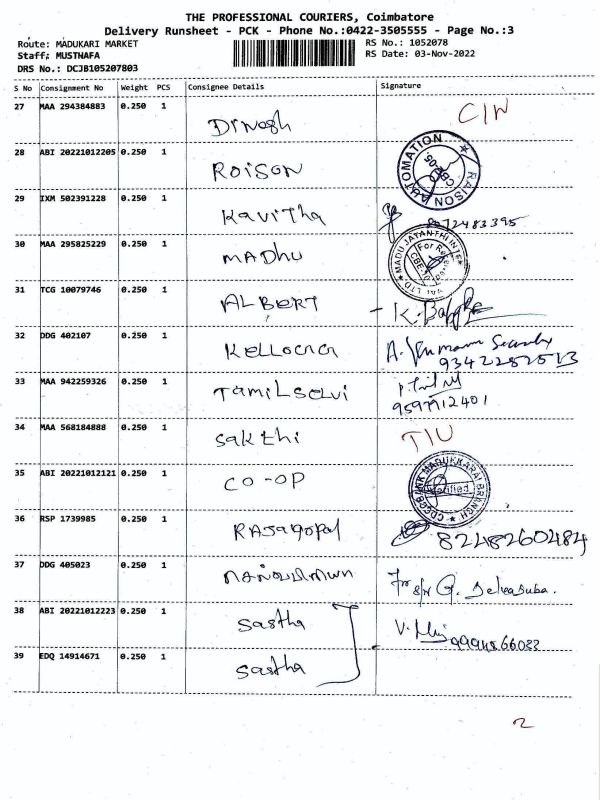 THE PROFESSIONAL COURIERS, Coimbatore
Delivery Runsheet - PCK - Phone No.:0422-3505555 - Page No.:3
Route: MADUKARI MARKET RS No.: 1052078
Staff: MUSTHAFA RS Date: 03-Nov-2022
DRS No.: DCJB105207803
S No Consignment No Weight PCS Consignee Details Signature
27 MAA 294384883 0.250 1 Dinesh C/N
28 ABI 20221012205 0.250 1 ROISON RAISON AUTOMATION CBE-05
29 IXM 502391228 0.250 1 Kavitha 8072483395
30 MAA 295825229 0.250 1 MADHU
31 TCG 10079746 0.250 1 ALBERT
32 DDG 402107 0.250 1 9342252513
33 MAA 942259326 0.250 1 Tamilselvi
34 MAA 568184888 0.250 1 Sakthi
35 ABI 20221012121 0.250 1 CO-OP MADUKKARAI BRANCH
36 RSP 1739985 0.250 1 RAJagopal 8248260484
37 DDG 405023 0.250 1
38 ABI 20221012223 0.250 1 Sastha
39 EDQ 14914671 0.250 1 Sastha
2